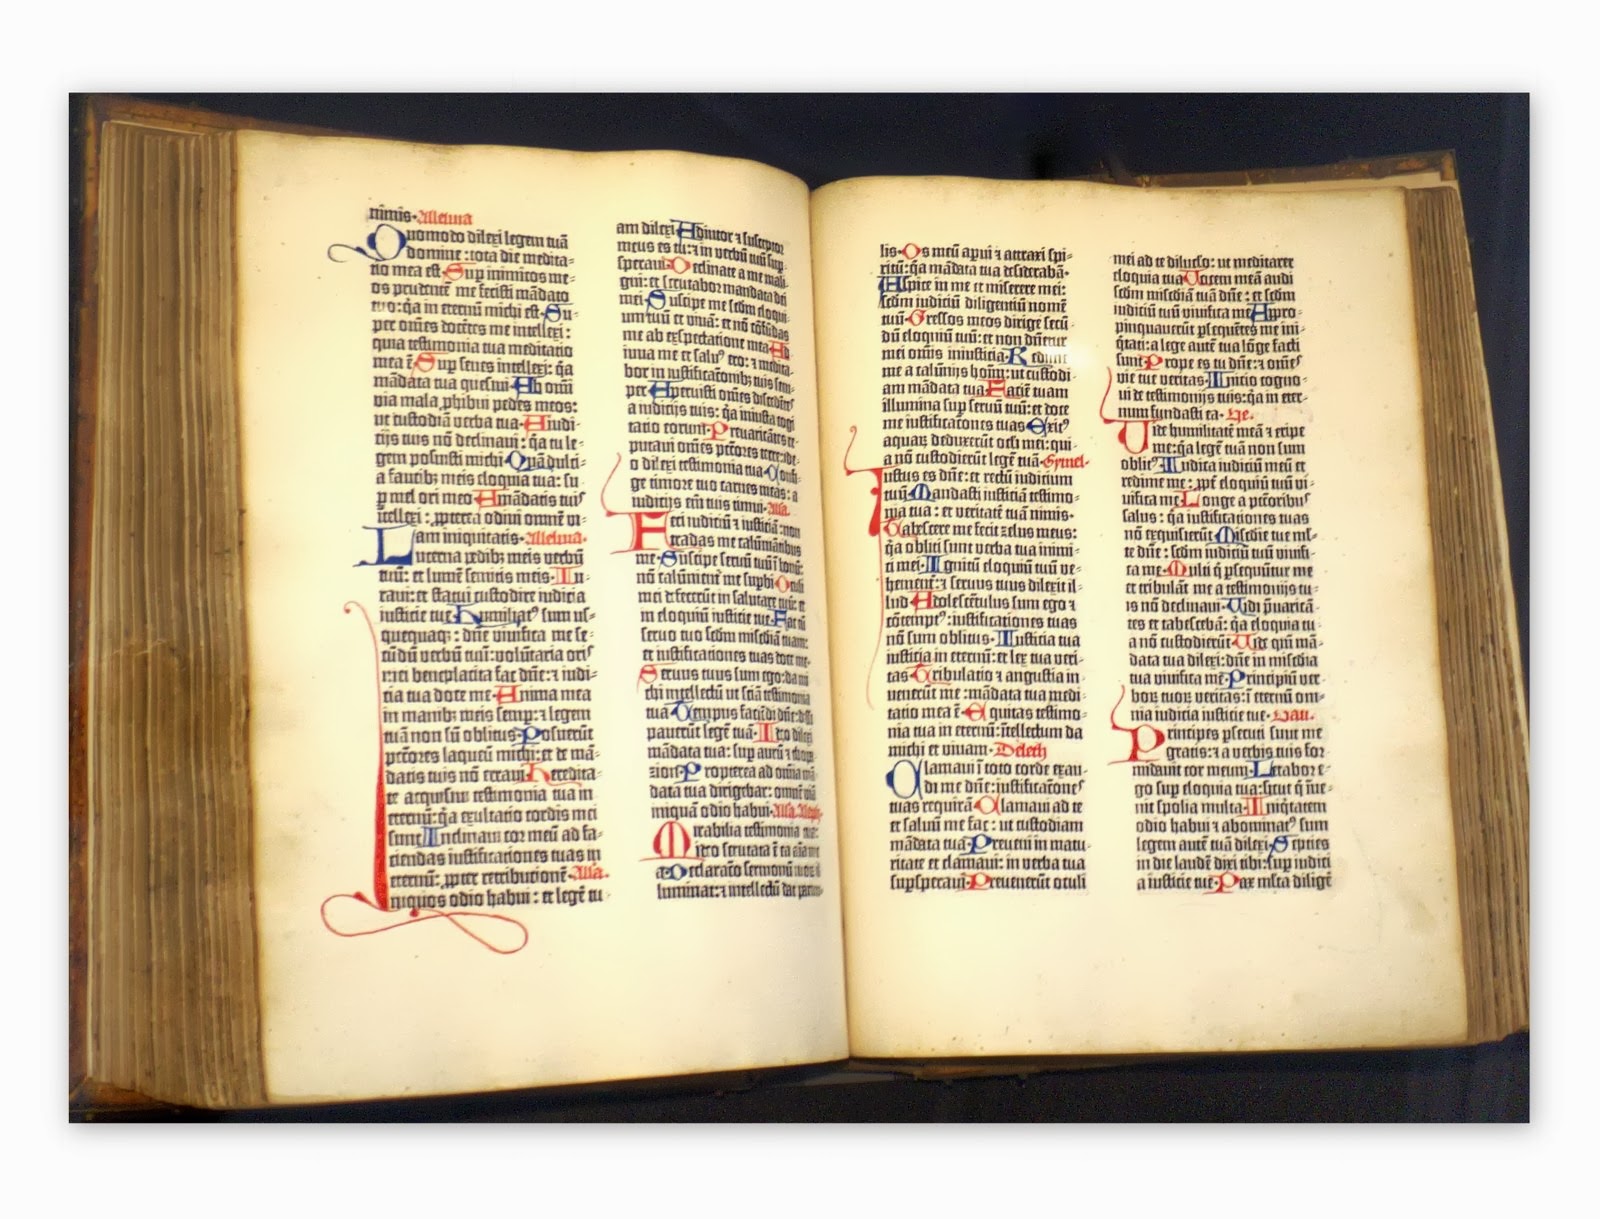 nimis. Alleluia
Quomodo dilexi legem tuā
domine: tota die medita-
tio mea est. Sup inimicos me-
os prudentē me fecisti mādato
tuo: q̄a in eternū michi est. Su-
per om̄es docētes me intellexi:
quia testimonia tua meditatio
mea ē. Sup senes intellexi: q̄a
mādata tua quesiui. Ab omi
via mala phibui pedes meos:
ut custodiā verba tua. A iudi-
cijs tuis nō declinaui: q̄a tu le-
gem posuisti michi. Quā dulci-
a faucibꝫ meis eloquia tua: su-
ꝑ mel ori meo. A mādatis tuis
ītellexi: ꝓpterea odiui omnē vi-
am iniquitatis. Alleluia.
Lucerna pedibꝫ meis verbū
tuū: et lumē semitis meis. Iu-
raui: et statui custodire iudicia
iusticie tue. Humiliatꝰ sum us-
quequaqꝫ: dn̄e viuifica me se-
cūdū verbū tuū: volūtaria oris
mei beneplacita fac dn̄e: ⁊ iudi-
cia tua doce me. Anima mea
in manibꝫ meis semp: ⁊ legem
tuā non sū oblitus. Posuerūt
pctōres laqueū michi: et de mā-
datis tuis nō erraui. Heredita-
te acquisiui testimonia tua in
eternū: q̄a exultatio cordis mei
sunt. Inclinaui cor meū ad fa-
ciendas iustificationes tuas in
eternū: ꝓpter retributionē. Alla.
Iniquos odio habui: et legē tu-
am dilexi. Adiutor ⁊ susceptor
meus es tu: ⁊ in verbū tuū sup-
speraui. Declinate a me mali-
gni: et scrutabor mandata dei
mei. Suscipe me scd̄m eloqui-
um tuū et viuā: et nō cōfūdas
me ab exspectatione mea. Ad-
iuua me et saluꝰ ero: ⁊ medita-
bor in iustificatōnibꝫ tuis sem-
per. Spreuisti om̄es discedētes
a iudicijs tuis: q̄a iniusta cogi
tatio eorum. Preuaricātes re-
putaui om̄es pctōres terre: ide-
o dilexi testimonia tua. Confi-
ge timore tuo carnes meas: a
iudicijs em̄ tuis timui. Alla.
Feci iudiciū ⁊ iusticiā: non
tradas me calūniātibus
me. Suscipe seruū tuū ī bonū:
nō calūnient̄ me supbi. Oculi
mei defecerūt in salutare tuū: et
in eloquiū iusticie tue. Fac cū
seruo tuo scd̄m mīam tuam:
et iustificationes tuas doce me.
Seruus tuus sum ego: da mi
chi intellectū ut sciā testimonia
tua. Tempus faciēdi dn̄e: dissi
pauerūt legē tuā. Ideo dilexi
mādata tua: sup aurū ⁊ thopa
zion. Propterea ad om̄ia mā-
data tua dirigebar: omnē viā
iniquā odio habui. Alla. Aleph.
Mirabilia testimonia tua:
ideo scrutata ē ea aīa me
a. Declaratō sermonū tuoꝝ il
luminat: ⁊ intellectū dat paruu-
lis. Os meū apui et attraxi spi-
ritū: q̄a mādata tua desiderabā.
Aspice in me et miserere mei:
scd̄m iudiciū diligentiū nomē
tuū. Gressos meos dirige secū-
dū eloquiū tuū: et non dn̄etur
mei om̄is iniusticia. Redime
me a calūnijs hoīm: ut custodi-
am mādata tua. Faciē tuam
illumina sup seruū tuū: et doce
me iustificatōnes tuas. Exitꝰ
aquaꝝ deduxerūt oc̄li mei: qui-
a nō custodierūt legē tuā. Symel.
Iustus es dn̄e: et rectū iudicium
tuū. Mandasti iusticiā testimo-
nia tua: et veritatē tuā nimis.
Tabescere me fecit zelus meus:
q̄a obliti sunt verba tua inimi-
ci mei. Ignitū eloquiū tuū ve-
hemēter: ⁊ seruus tuus dilexit il-
lud. Adolescētulus sum ego ⁊
cōtemptꝰ: iustificationes tuas
nō sum oblitus. Iusticia tua
iusticia in eternū: et lex tua veri-
tas. Tribulatio ⁊ angustia in-
uenerūt me: mādata tua medi-
tatio mea ē. Equitas testimo-
nia tua in eternū: ītellectum da
michi et viuam. Deleth
Clamaui ī toto corde exau-
di me dn̄e: iustificatōnes
tuas requirā. Clamaui ad te
et saluū me fac: ut custodiam
mādata tua. Preueni in matu-
ritate et clamaui: in verba tua
supsperaui. Preuenerūt oculi
mei ad te diluclo: ut meditarer
eloquia tua. Uocem meā audi
scd̄m miscd̄iā tuā dn̄e: et scd̄m
iudiciū tuū viuifica me. Appro-
pinquauerūt ꝑsequētes me ini-
q̄tati: a lege autē tua lōge facti
sunt. Prope es tu dn̄e: ⁊ om̄es
vie tue veritas. Inicio cogno-
ui de testimonijs tuis: q̄a in eter-
num fundasti ea. He.
Uide humilitatē meā ⁊ eripe
me: q̄a legē tuā non sum
oblitꝰ. Iudica iudiciū meū et
redime me: ꝓpt̄ eloquiū tuū vi-
uifica me. Longe a pctōribus
salus: q̄a iustificationes tuas
nō exquisierūt. Miscd̄ie tue ml̄-
te dn̄e: scd̄m iudiciū tuū viuifi-
ca me. Multi q̄ ꝑsequunt̄ me
et tribulāt me a testimonijs tu-
is nō declinaui. Uidi p̄uaricā-
tes et tabescebā: q̄a eloquia tu-
a nō custodierūt. Uide qm̄ mā-
data tua dilexi: dn̄e in miscd̄ia
tua viuifica me. Principiū ver-
boꝝ tuoꝝ veritas: ī eternū om-
nia iudicia iusticie tue. Vau.
Principes ꝑsecuti sunt me
gratis: ⁊ a verbis tuis for-
midauit cor meum. Letabor e-
go sup eloquia tua: sicut q̄ īue-
nit spolia multa. Iniq̄tatem
odio habui ⁊ abominatꝰ sum
legem autē tuā dilexi. Septies
in die laudē dixi tibi: sup iudici
a iusticie tue. Pax mlta diligē